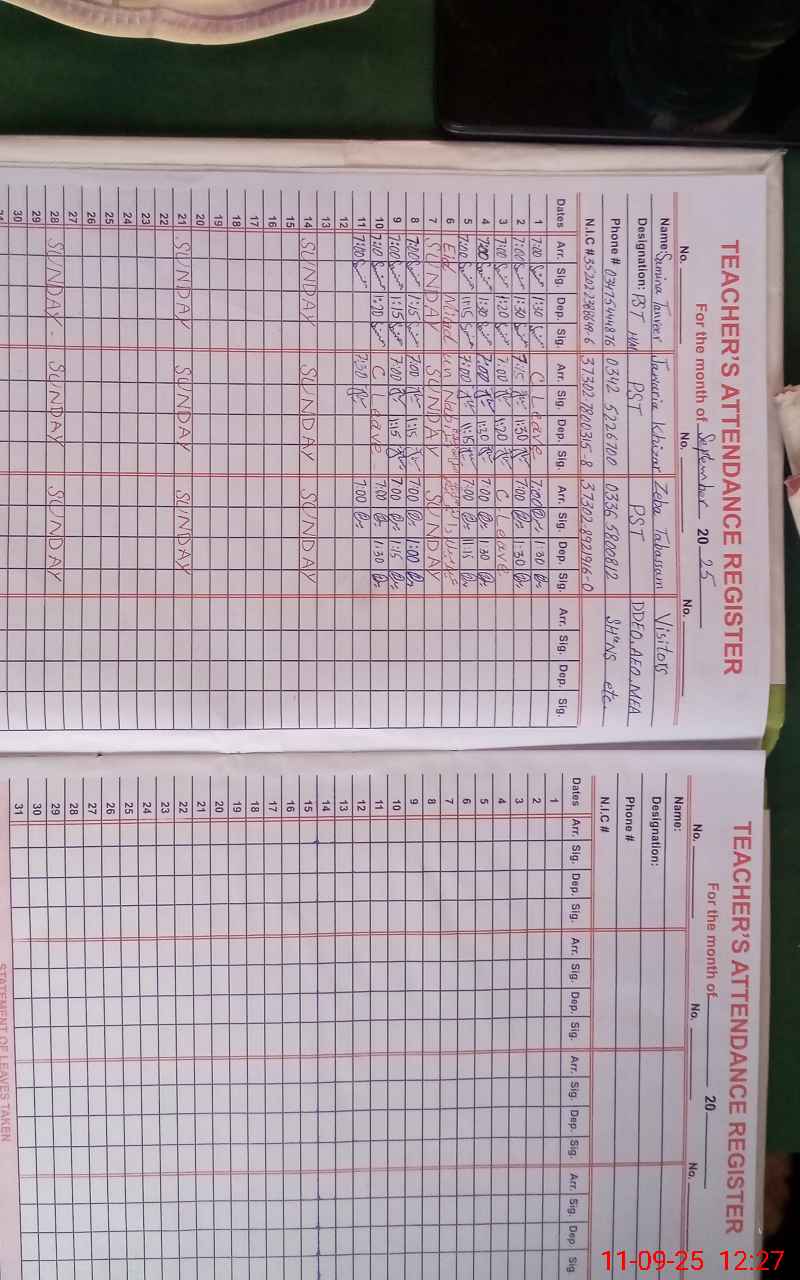 TEACHER'S ATTENDANCE REGISTER
For the month of September 2025
No. No. No.
Name: Samina Tanveer Javaria Khizar Zeba Tabassum Visitors
Designation: PST HM PST PST DDEO, AEO, MEA
Phone # 03475444876 0342 5226700 0336 5800812 etc
N.I.C # 37302-7800315-8 37302-8921916-0
Dates Arr. Sig. Dep. Sig. Arr. Sig. Dep. Sig. Arr. Sig. Dep. Sig. Arr. Sig. Dep. Sig.
1 7:00 1:30 C Leave 7:00 1:30
2 7:00 1:30 7:15 1:30 7:00 1:30
3 7:00 1:20 7:00 1:20 C. Leave
4 7:00 1:30 7:00 1:30 7:00 1:30
5 7:00 11:15 7:00 11:15 7:00 11:15
6 Eid Milad un Nabi
7 SUNDAY SUNDAY SUNDAY
8 7:00 1:15 7:00 1:15 7:00 1:00
9 7:00 1:15 7:00 1:15 7:00 1:15
10 7:00 1:20 C Leave 7:00 1:30
11 7:00 7:30 7:00
12
13
14 SUNDAY SUNDAY SUNDAY
15
16
17
18
19
20
21 SUNDAY SUNDAY SUNDAY
22
23
24
25
26
27
28 SUNDAY SUNDAY SUNDAY
29
30
31
TEACHER'S ATTENDANCE REGISTER
For the month of 20
No. No. No.
Name:
Designation:
Phone #
N.I.C #
Dates Arr. Sig. Dep. Sig. Arr. Sig. Dep. Sig. Arr. Sig. Dep. Sig. Arr. Sig. Dep Sig.
1
2
3
4
5
6
7
8
9
10
11
12
13
14
15
16
17
18
19
20
21
22
23
24
25
26
27
28
29
30
31
STATEMENT OF LEAVES TAKEN
11-09-25 12:27